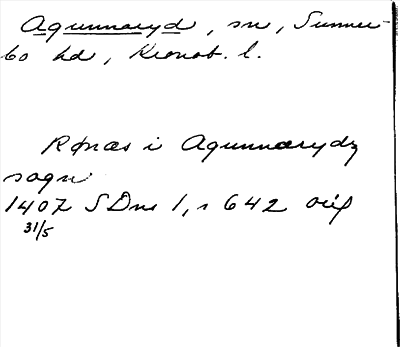 Agunnaryd, sn, Sunner-
bo hd, Kronob. l.
Rønæs i Agunnarydz
sogn
1407 SDns 1, s 642 avs
31/5